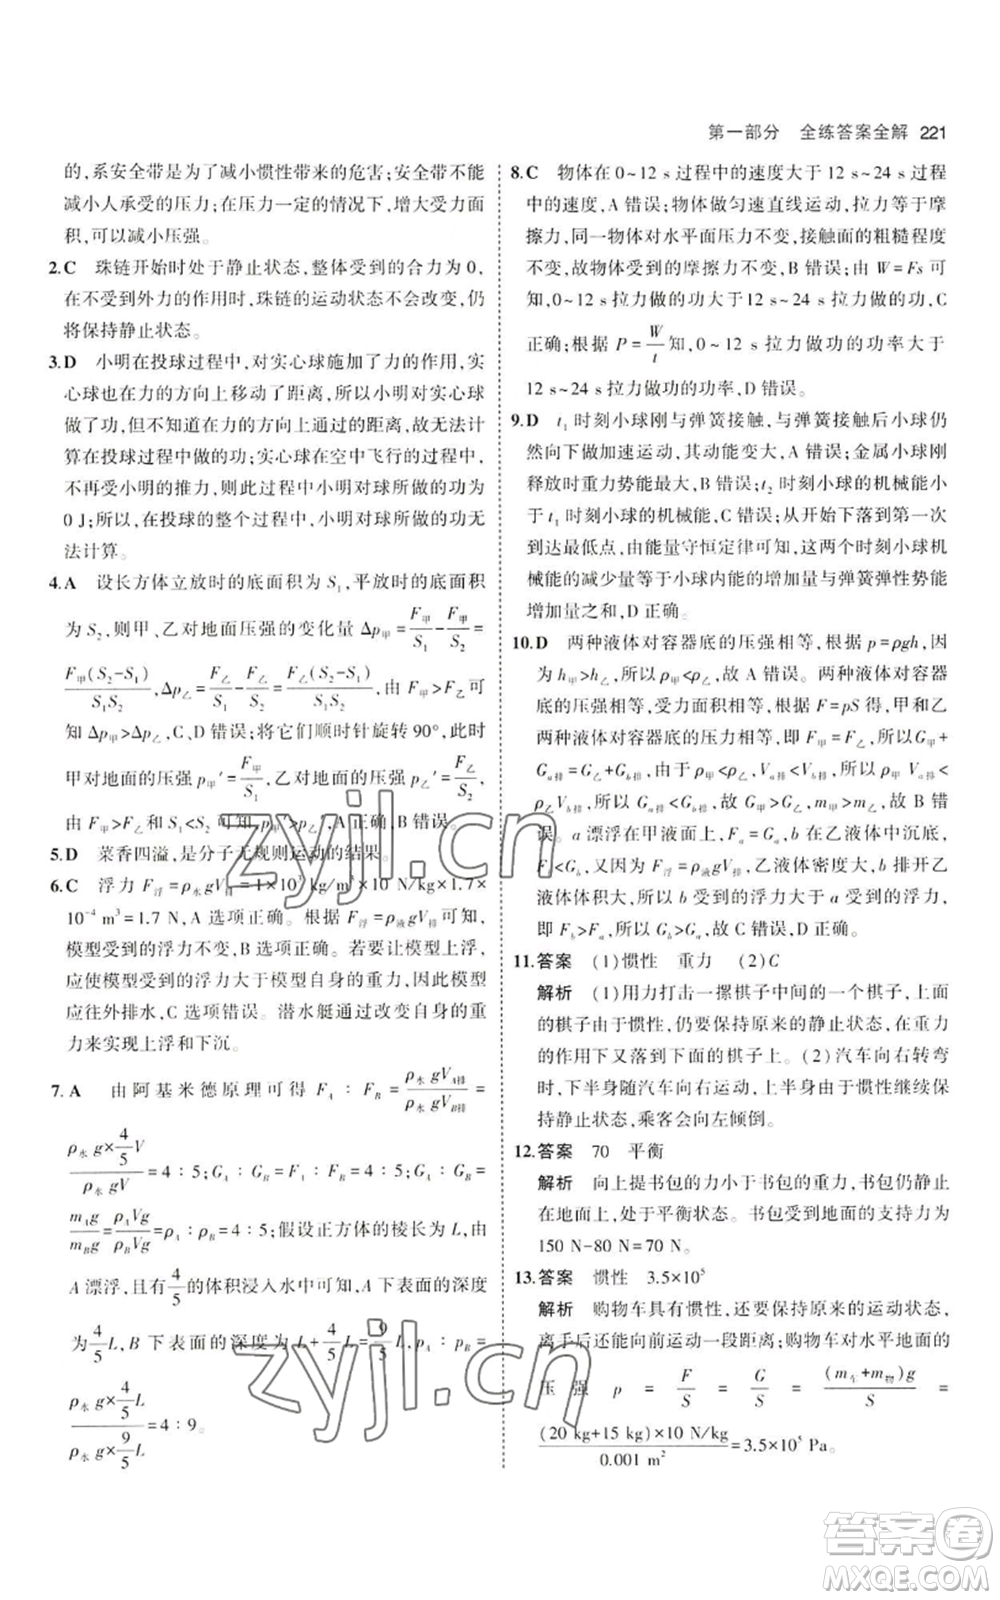 第一部分 全练答案全解 221
的,系安带是为了减小惯性带来的危害,安全带不能
减小人承受的压力;在压力一定的情况下,增大受力面
积,可以减小压强。
2.C 珠链开始时处于静止状态,整体受到的合力为0,
在不受到外力的作用时,珠链的运动状态不会改变,仍
将保持静止状态。
3.D 小明在投球过程中,对实心球施加了力的作用,实
心球也在力的方向上移动了距离,所以小明对球
做了功,但不知道球在力的方向上通过的距离,故无法计
算在投球过程中做的功;实心球在空中飞行的过程中,
不再受小明的推力,则此过程中小明对球所做的功为
0 J;所以,在投球的整个过程中,小明对球所做的功无
法计算。
4.A 设长方体立放时的底面积为S₁,平放时的底面积
为S₂,则甲、乙对地面压强的变化量Δp甲=F甲/S₁-F甲/S₂=
F甲(S₂-S₁)/S₁S₂,Δp乙=F乙/S₁-F乙/S₂=F乙(S₂-S₁)/S₁S₂,由F甲>F乙可
知Δp甲>Δp乙,C、D错误;将它们顺时针旋转90°,此时
甲对地面的压强p甲′=F甲/S₁,乙对地面的压强p乙′=F乙/S₂,
由F甲>F乙和S₁<S₂可知p甲′>p乙′,A正确,B错误。
5.D 菜香四溢,是分子无规则运动的结果。
6.C 浮力F浮=ρ水gV排=1×10³ kg/m³×10 N/kg×1.7×
10⁻⁴ m³=1.7 N,A选项正确。根据F浮=ρ液gV排可知,
模型受到的浮力不变,B选项正确。若要让模型上浮,
应使模型受到的浮力大于模型自身的重力,因此模型
应往外排水,C选项错误。潜水艇通过改变自身的重
力来实现上浮和下沉。
7.A 由阿基米德原理可得F_A∶F_B=ρ水gV_A排/ρ水gV_B排=
ρ水g×4/5V/ρ水gV=4∶5;G_A∶G_B=F_A∶F_B=4∶5;G_A∶G_B=
m_Ag/m_Bg=ρ_AVg/ρ_BVg=ρ_A∶ρ_B=4∶5;假设正方体的棱长为L,由
A漂浮,且有4/5的体积浸入水中可知,A下表面的深度
为4/5L,B下表面的深度为L+4/5L=9/5L,p_A∶p_B=
ρ水g×4/5L/ρ水g×9/5L=4∶9。
8.C 物体在0~12 s过程中的速度大于12 s~24 s过程
中的速度,A错误;物体做匀速直线运动,拉力等于摩
擦力,同一物体对水平面压力不变,接触面的粗糙程度
不变,故物体受到的摩擦力不变,B错误;由W=Fs可
知,0~12 s拉力做的功大于12 s~24 s拉力做的功,C
正确;根据P=W/t知,0~12 s拉力做功的功率大于
12 s~24 s拉力做功的功率,D错误。
9.D t₁时刻小球刚与弹簧接触,与弹簧接触后小球仍
然向下做加速运动,其动能变大,A错误;金属小球刚
释放时重力势能最大,B错误;t₂时刻小球的机械能小
于t₁时刻小球的机械能,C错误;从开始下落到第一次
到达最低点,由能量守恒定律可知,这两个时刻小球机
械能的减少量等于小球内能的增加量与弹簧弹性势能
增加量之和,D正确。
10.D 两种液体对容器底的压强相等,根据p=ρgh,因
为h甲>h乙,所以ρ甲<ρ乙,故A错误。两种液体对容器
底的压强相等,受力面积相等,根据F=pS得,甲和乙
两种液体对容器底的压力相等,即F甲=F乙,所以G甲+
G_a排=G乙+G_b排,由于ρ甲<ρ乙,V_a排<V_b排,所以ρ甲V_a排<
ρ乙V_b排,所以G_a排<G_b排,故G甲>G乙,m甲>m乙,故B错
误。a漂浮在甲液面上,F_a=G_a,b在乙液体中沉底,
F_b<G_b,又因为F浮=ρ液gV排,乙液体密度大,b排开乙
液体体积大,所以b受到的浮力大于a受到的浮力,
即F_b>F_a,所以G_b>G_a,故C错误,D正确。
11.答案 (1)惯性 重力 (2)C
解析 (1)用力打击一摞棋子中间的一个棋子,上面
的棋子由于惯性,仍要保持原来的静止状态,在重力
的作用下又落到下面的棋子上。(2)汽车向右转弯
时,下半身随汽车向右运动,上半身由于惯性继续保
持静止状态,乘客会向左倾倒。
12.答案 70 平衡
解析 向上提书包的力小于书包的重力,书包仍静止
在地面上,处于平衡状态。书包受到地面的支持力为
150 N-80 N=70 N。
13.答案 惯性 3.5×10⁵
解析 购物车具有惯性,还要保持原来的运动状态,
离手后还能向前运动一段距离;购物车对水平地面的
压强p=F/S=G/S=(m车+m物)g/S=
(20 kg+15 kg)×10 N/kg/0.001 m²=3.5×10⁵ Pa。
zyjl.cn
zyjl.cn
答案卷
MXQE.COM